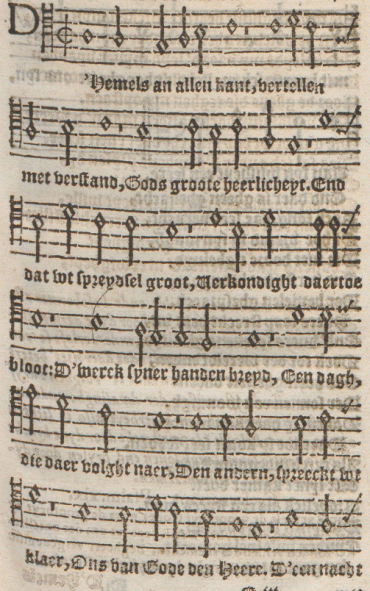 D
'Hemels an allen kant, vertellen
met verstand, Gods groote heerlicheyt. End
dat wt spreydsel groot, Verkondight daertoe
bloot: D'werck syner handen breyd, Een dagh,
die daer volght naer, Den andern, spreeckt wt
klaer, Ons van Gode den Heere. D'een nacht